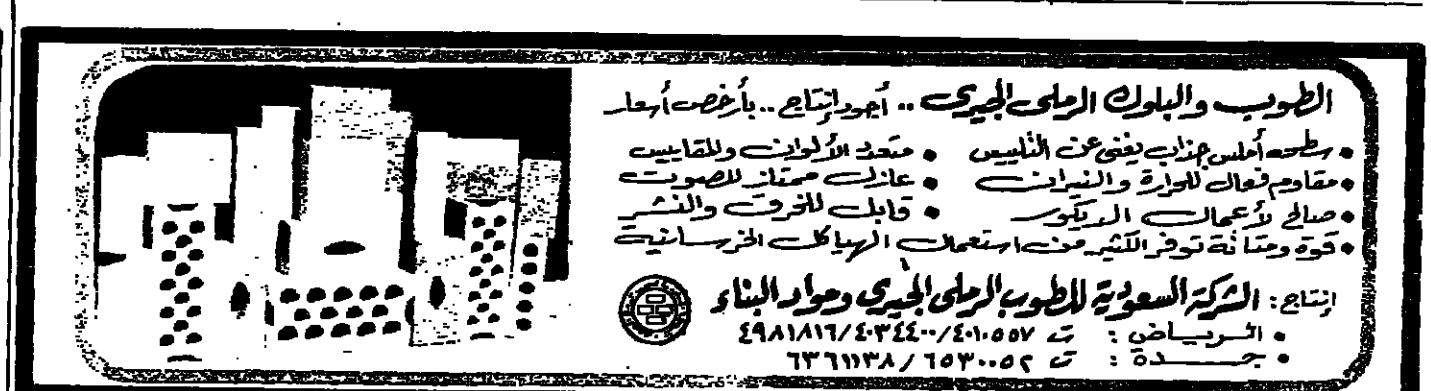 الطوب والبلوك الرملى الجيرى .. أجود إنتاج .. بأرخص أسعار
• سطحه أملس جذاب يغنى عن التلييس • متعدد الألوان والمقاييس
• مقاوم فعال للحرارة والنيران • عازل ممتاز للصوت
• صالح لأعمال الديكور • قابل للخرق والنشر
• قوة ومتانة توفر الكثير من استعمال الهياكل الخرسانية
إنتاج: الشركة السعودية للطوب الرملى الجيرى ومواد البناء
• الرياض : ت ٤٠١٠٥٥٧/٤٠٣٤٤٠٠/٤٩٨١٨١٦
• جدة : ت ٦٥٣٠٠٥٢/٦٣٦١١٣٨